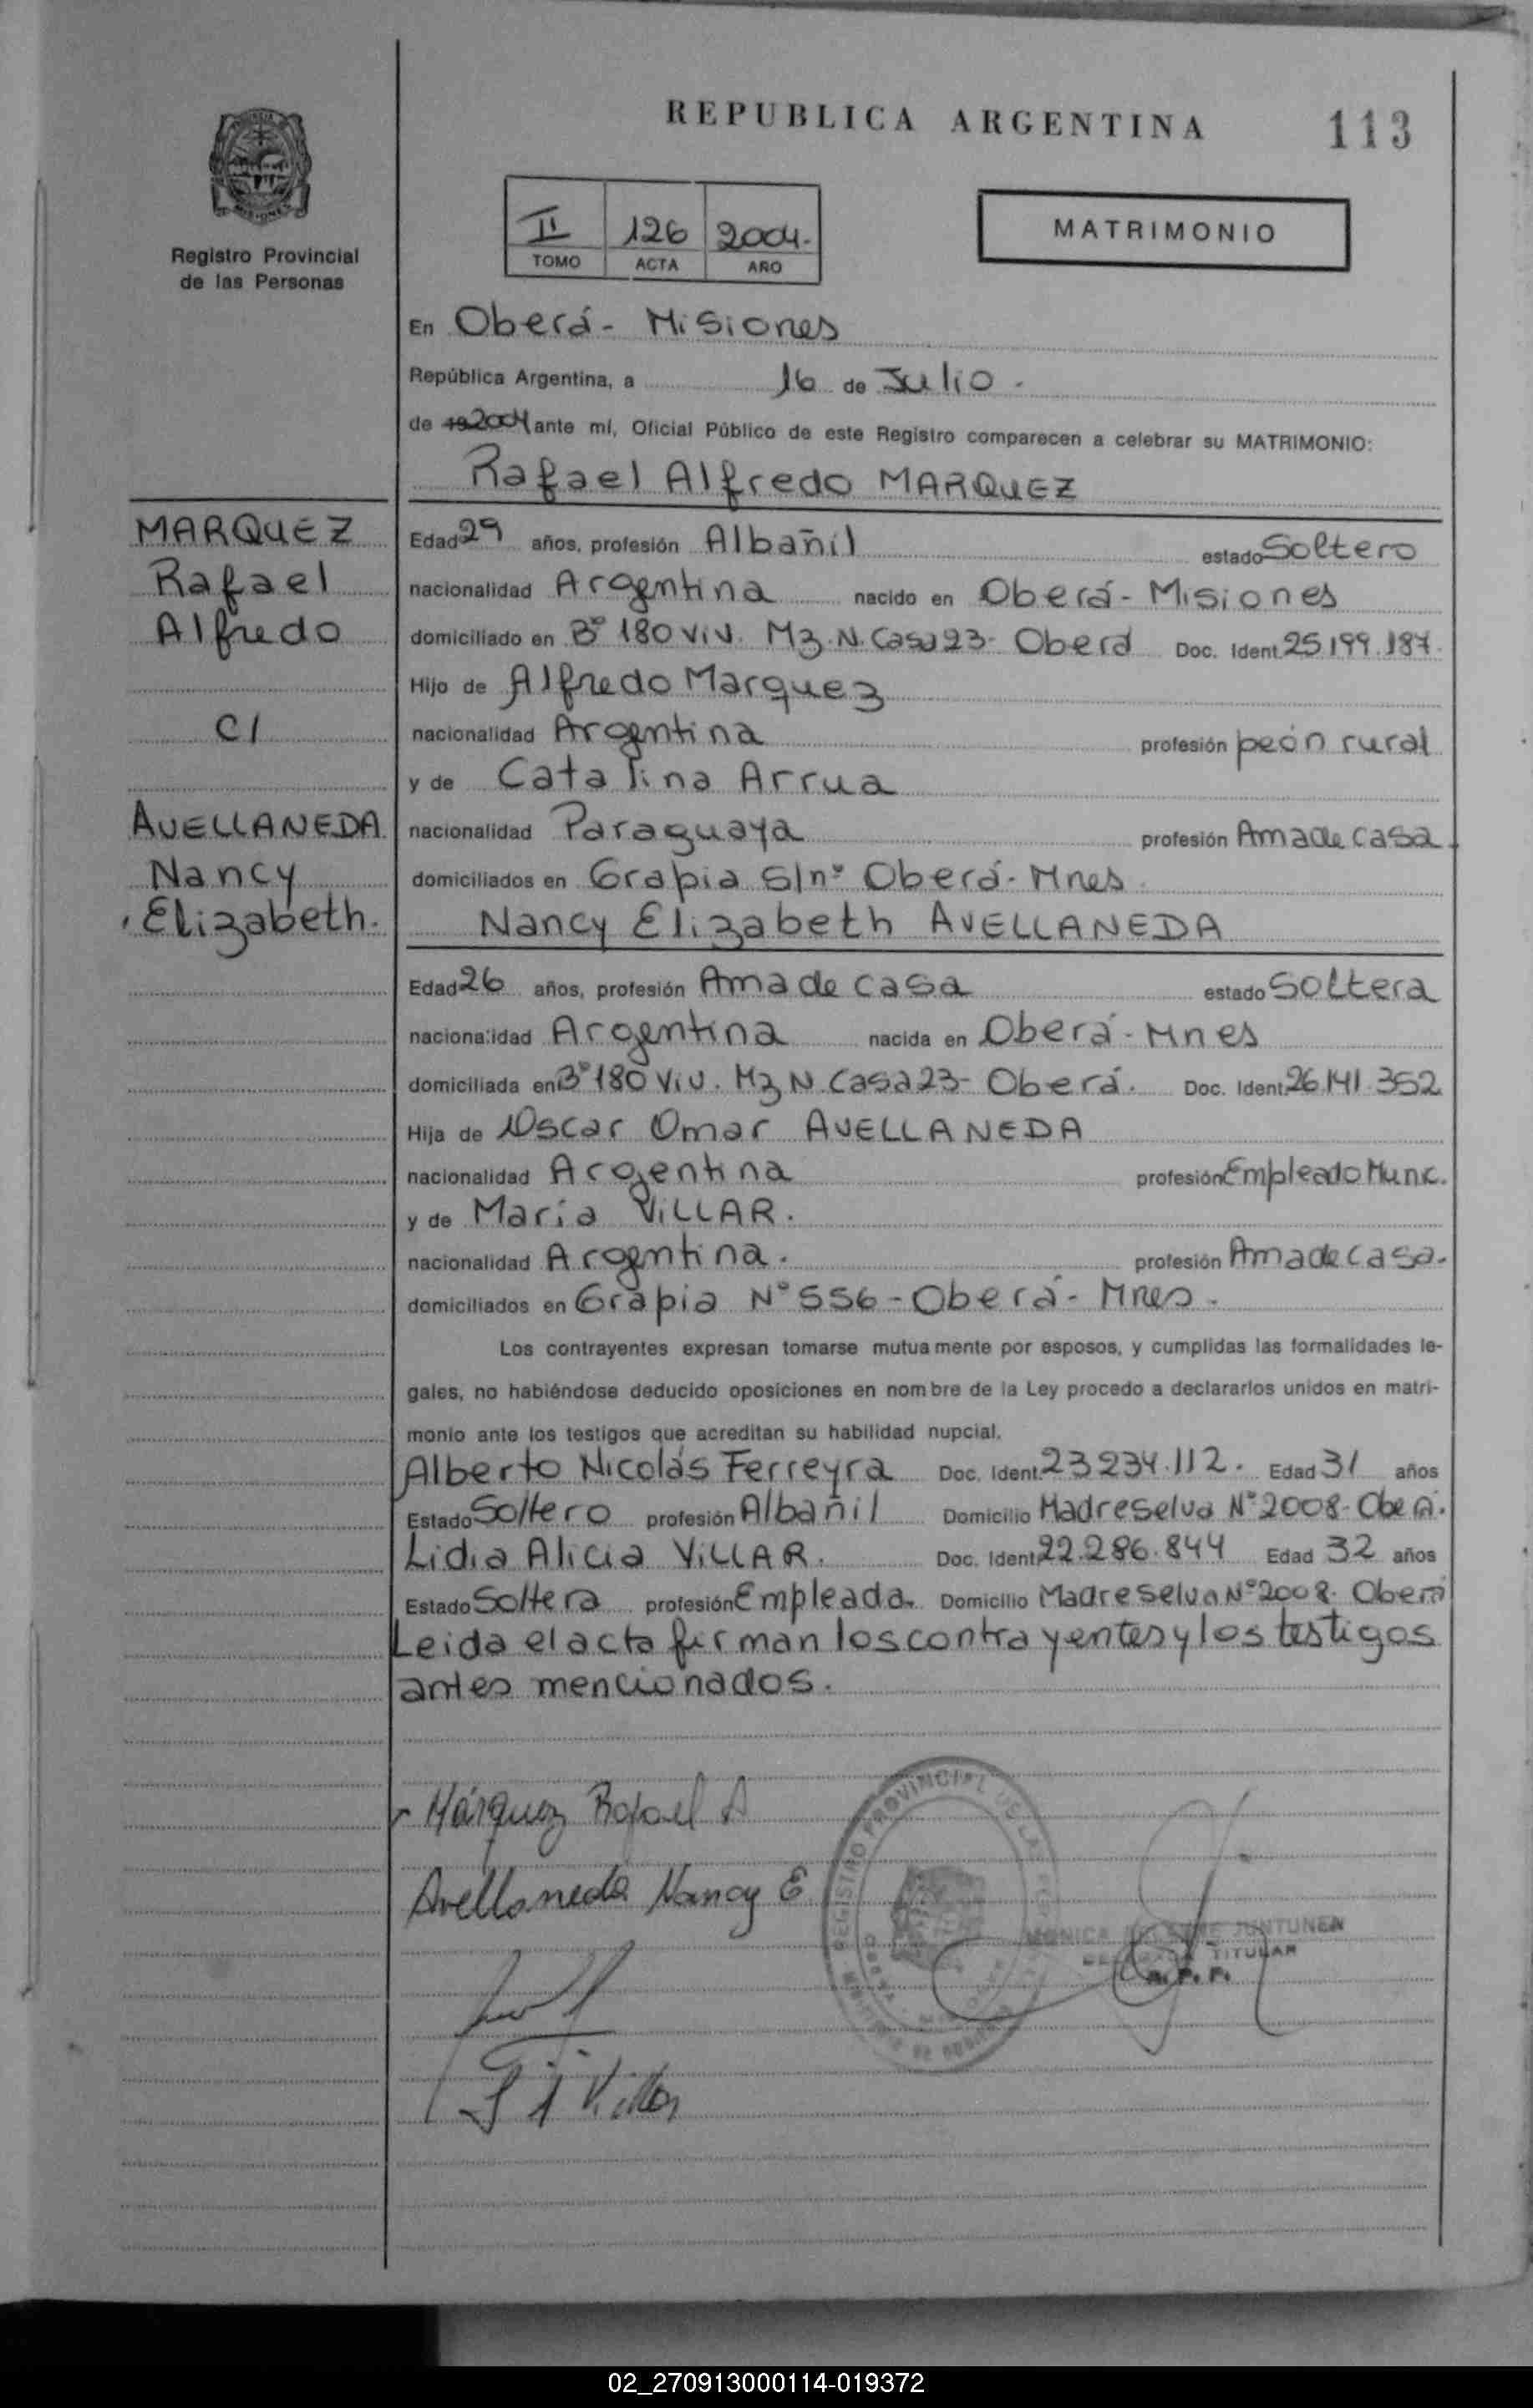 REPUBLICA ARGENTINA
113
II 126 2004.
TOMO ACTA AÑO
MATRIMONIO
Registro Provincial
de las Personas
En Oberá - Misiones
República Argentina, a 16 de Julio.
de 19 2004 ante mí, Oficial Público de este Registro comparecen a celebrar su MATRIMONIO:
Rafael Alfredo MARQUEZ
MARQUEZ
Rafael
Alfredo
C/
AVELLANEDA
Nancy
Elizabeth.
Edad 29 años, profesión Albañil estado Soltero
nacionalidad Argentina nacido en Oberá - Misiones
domiciliado en B° 180 Viv. Mz. N. Casa 23 - Oberá Doc. Ident. 25.199.187.
Hijo de Alfredo Marquez
nacionalidad Argentina profesión peón rural
y de Catalina Arrua
nacionalidad Paraguaya profesión Ama de casa.
domiciliados en Grapia S/n° Oberá - Mnes.
Nancy Elizabeth AVELLANEDA
Edad 26 años, profesión Ama de casa estado Soltera
nacionalidad Argentina nacida en Oberá - Mnes
domiciliada en B° 180 Viv. Mz N. Casa 23 - Oberá. Doc. Ident. 26.141.352
Hija de Oscar Omar AVELLANEDA
nacionalidad Argentina profesión Empleado Munc.
y de Maria VILLAR.
nacionalidad Argentina. profesión Ama de casa.
domiciliados en Grapia N° 556 - Oberá - Mnes.
Los contrayentes expresan tomarse mutuamente por esposos, y cumplidas las formalidades le-
gales, no habiéndose deducido oposiciones en nombre de la Ley procedo a declararlos unidos en matri-
monio ante los testigos que acreditan su habilidad nupcial.
Alberto Nicolás Ferreyra Doc. Ident. 23.234.112. Edad 31 años
Estado Soltero profesión Albañil Domicilio Madreselva N° 2008 - Oberá.
Lidia Alicia VILLAR. Doc. Ident. 22.286.844 Edad 32 años
Estado Soltera profesión Empleada. Domicilio Madreselva N° 2008. Oberá
Leida el acta firman los contrayentes y los testigos
antes mencionados.
Márquez Rafael A
Avellaneda Nancy E
L A Villar
REGISTRO PROVINCIAL DE LAS
MONICA JUNTUNEN
TITULAR
R. P. P.
02_270913000114-019372